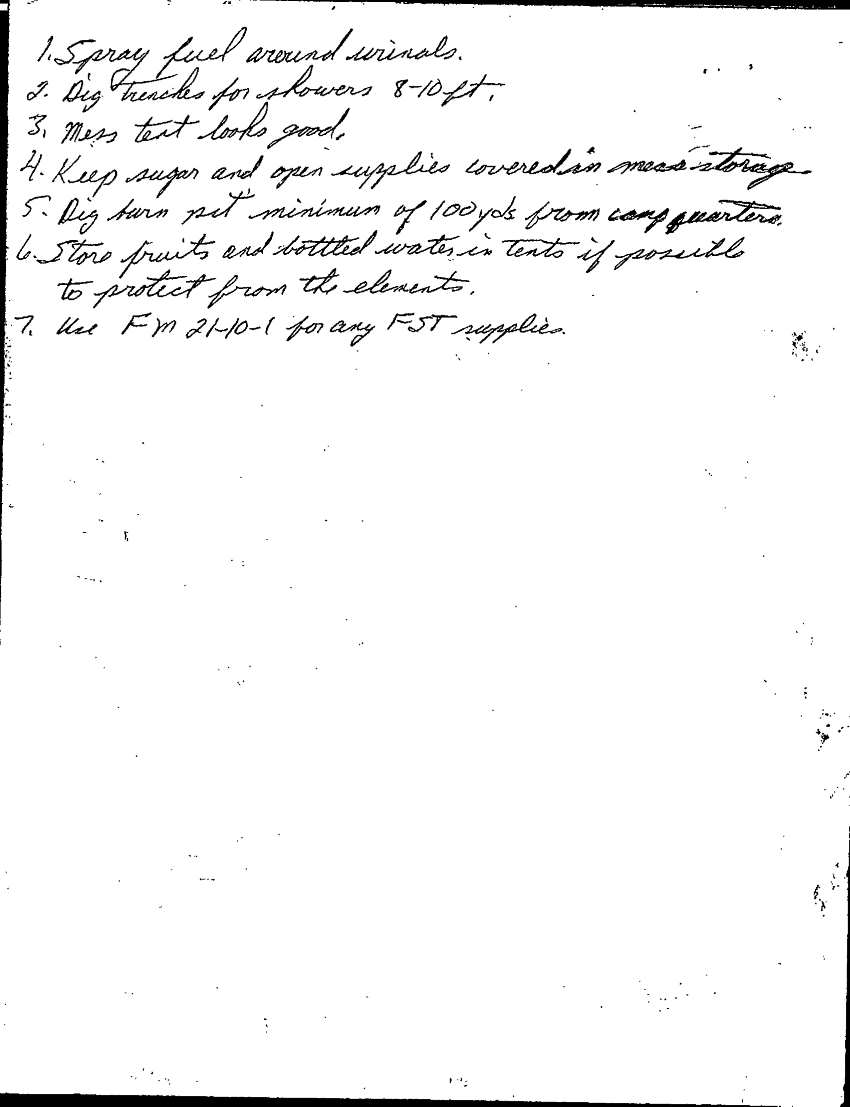 1. Spray fuel around urinals.
2. Dig trenches for showers 8-10 ft.
3. Mess tent looks good.
4. Keep sugar and open supplies covered in mess storage
5. Dig burn pit minimum of 100 yds from camp quarters.
6. Store fruits and bottled water in tents if possible
to protect from the elements.
7. Use FM 21-10-1 for any FST supplies.